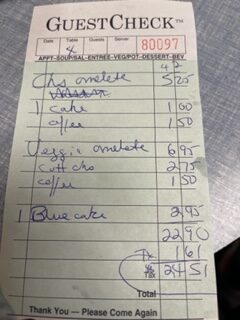 GUESTCHECK™
Date Table Guests Server
4 80097
APPT-SOUP/SAL-ENTREE-VEG/POT-DESSERT-BEV
Chs omelete 5 25
1 cake 1 00
coffee 1 50
Veggie omelete 6 95
cott chs 2 75
coffee 1 50
1 Blue cake 3 95
22 90
Tx 1 61
TAX 24 51
Total
Thank You — Please Come Again